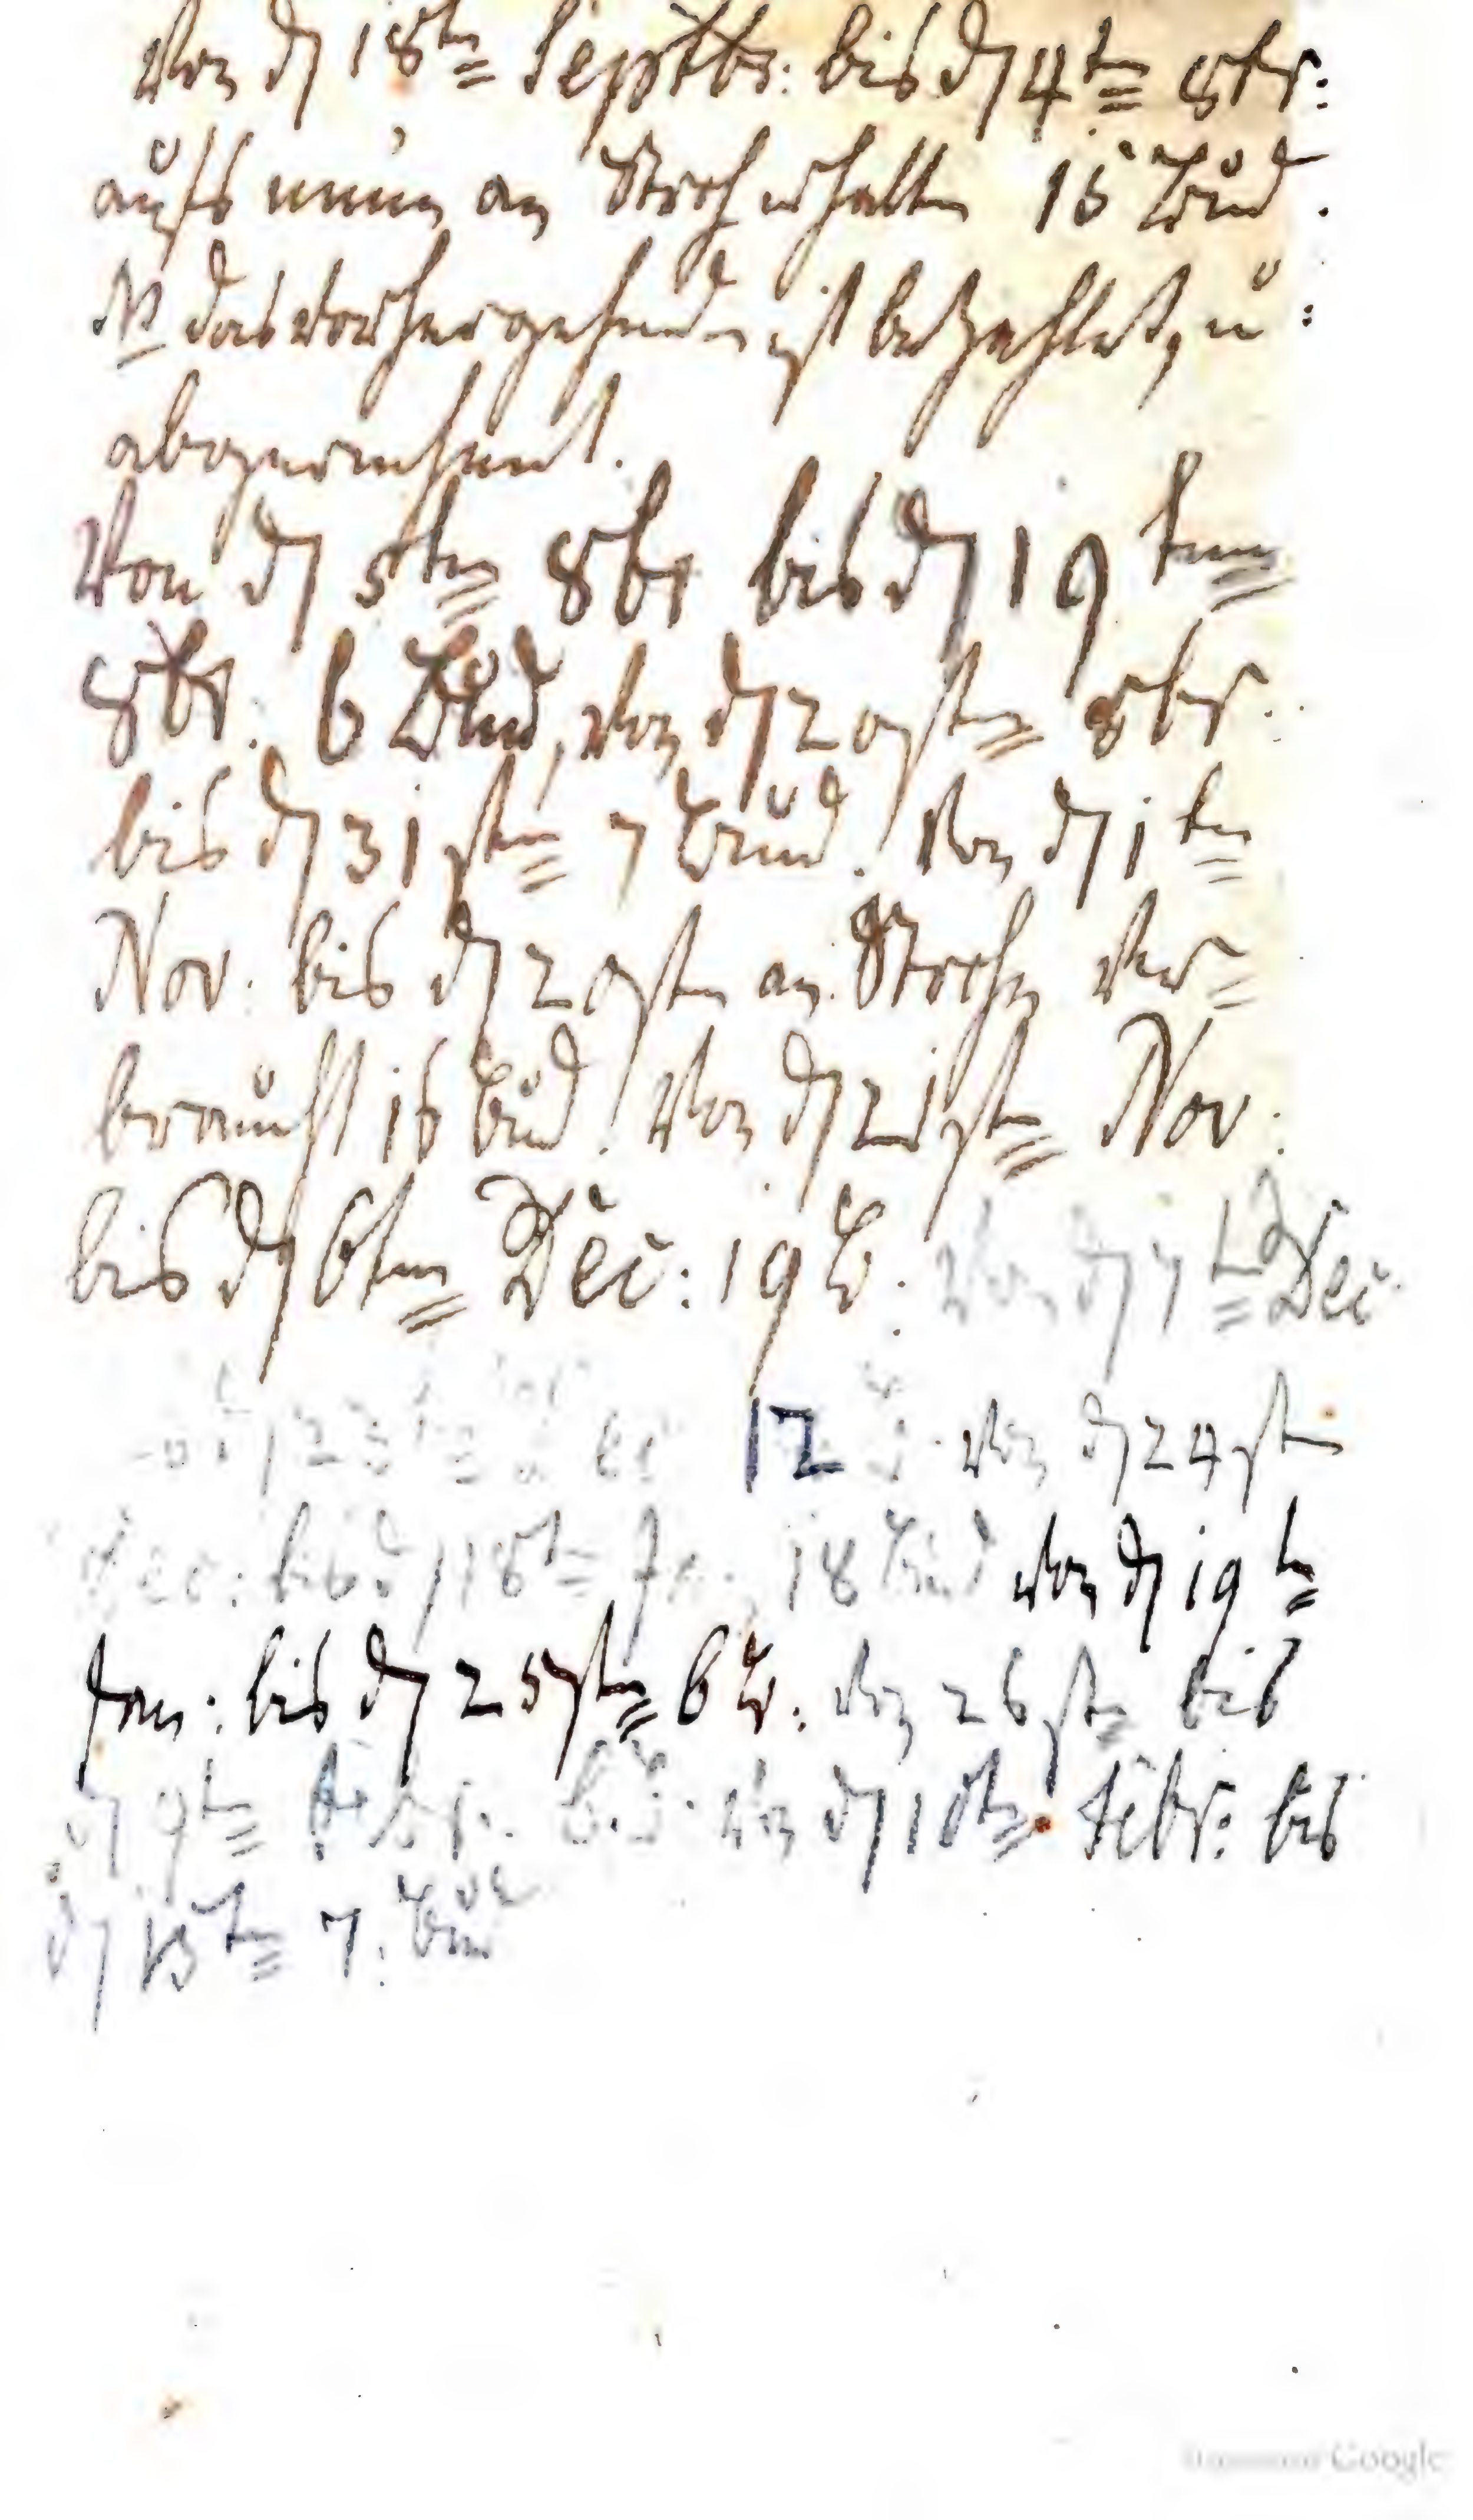 Von d 18ten Septbr: bis d 4ten 8br:
aufs neue an Stroh erhalten 15 Bund.
NB das vorhergehende ist bezahlet, u:
abgerechnet.
Von d 5ten 8br bis d 19tenn
8br: 6 Bund, von d 20sten 8br:
bis d 31sten 7 Bund. Von d 1ten
Nov: bis d 20sten an Stroh ver=
braucht 16 Bund. Von d 21sten Nov:
bis d 6ten Dec: 19 B. Von d 7ten Dec
12 von d 24sten
Dec: bis d 18ten Jan 18 Bund von d 19ten
Jan: bis d 25sten 6 B. von 26sten bis
d 9ten Febr: von d 10ten Febr: bis
d 13ten 7: Bund
Google